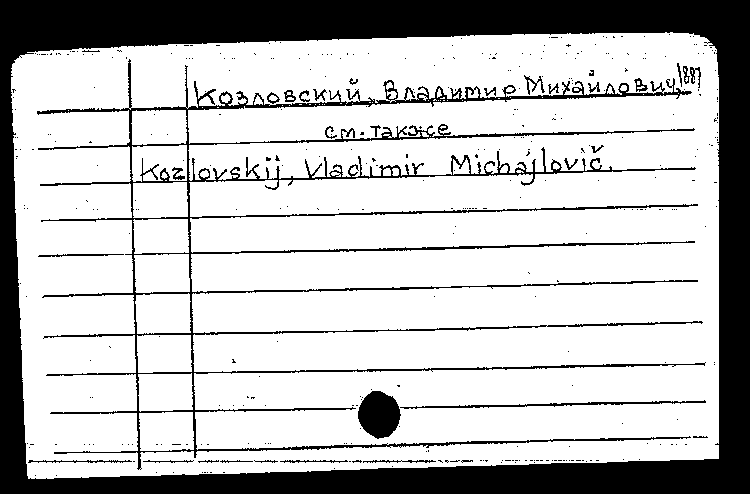 Козловский, Владимир Михайлович, 1887
см. также
Kozlovskij, Vladimir Michajlovič.